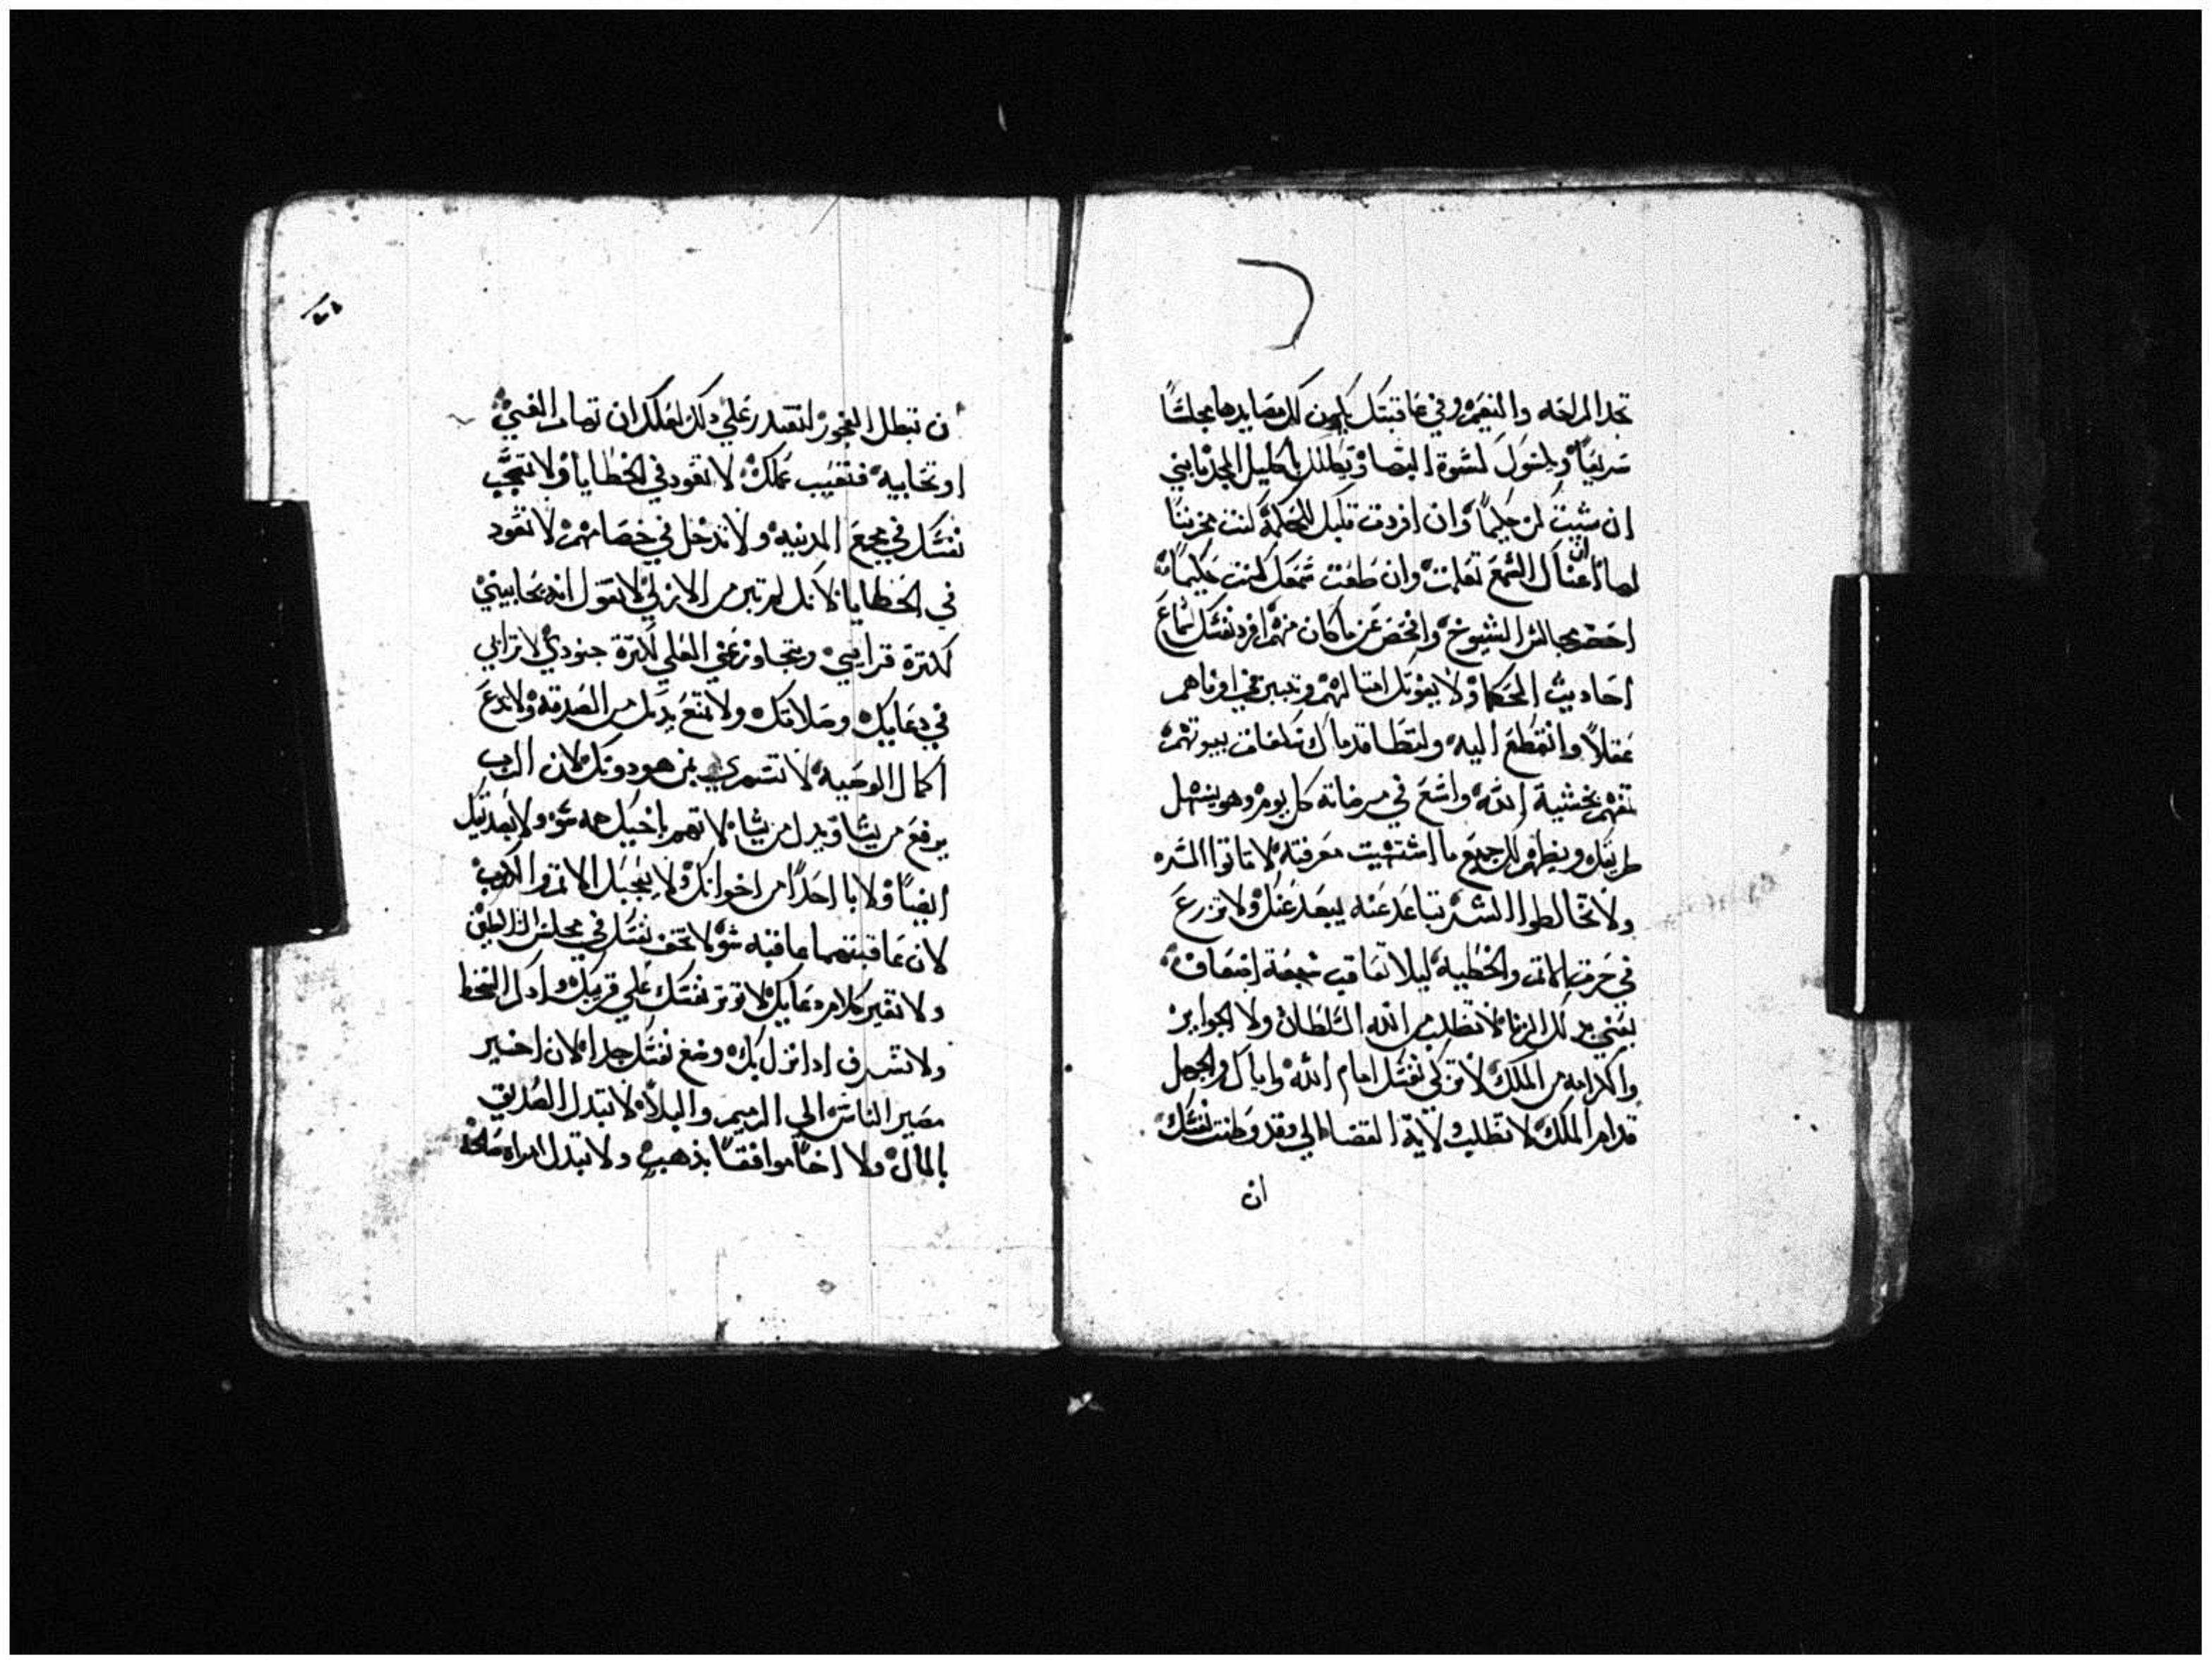 تجد الراحه والنعيم وفي عاقبتك يكون لك مصايدها مجلسًا
سريعًا وحنول كسوة البها ويكللك باكليل المجد يابني
ان شيت كن حكيمًا وان افردت قلبك للحكمة كنت مجربنا
اما ان اعتال السمع تعلمت وان طعت سمعك كنت حكيمًا
احضر مجالس الشيوخ وافحص عن ما كان منهم افرد نفسك لسماع
احاديث الحكما ولا يفوتك امثالهم وتبين في اوناهم
عقلاً وانقطع اليه ولتطا قدماك تلغاف بيوتهم
تفهم بخشية الله واسع في مرضاته كل يوم وهو يسهل
طريقك ويظهر لك جميع ما اشتهيت معرفته لا تاتوا الشر
ولا تخالطوا الشر تباعد عنه ليبعد عنك ولا تزرع
في حرث الاثم والخطيه ليلا تعاقب سبعة اضعاف
يعني بذلك الزنا لا تطلب من الله السلطان ولا الجوايز
والكرامه من الملك لا تزكي نفسك امام الله واياك والجهل
قدام الملك لا تطلب ولاية القضا الي وقد وطنت نفسك
ان
ان تبطل الفجور لتقتدر علي ذلك لعلك ان تهاب الغني
او تحابيه فتعيب عملك لا تعود في الخطايا ولا تعجب
نفسك في مجمع المدينه ولا تدخل في خصامهم لا تعود
في الخطايا لانك لم تبر من الاولي لا تقول انه يحابيني
لكثرة قرابيني ويتجاوز عني العلي لكثرة جنودي لا تراني
في دعايك وصلاتك ولا تمنع يدك من الصدقه ولا تدع
اكمال الوصيه لا تستهري بمن هو دونك لان الرب
يرفع من يشا ويدل من يشا لا تهم باخيك همه سو ولا بصديقك
ايضًا ولا با احدًا من اخوانك ولا يعجبك الاثم والكذب
لان عاقبتهما عاقبه سو لا تخف نفسك في مجلس السلاطين
ولا تغير كلام دعايك لا توثر نفسك علي قريبك وادكر السخط
ولا تشرف ادا نزل بك وضع نفسك جدا لان اخير
مصير الناس الي الرميم والبلا لا تبدل الصديق
بالمال ولا اخًا موافقًا بذهب ولا تبدل امراه صالحه